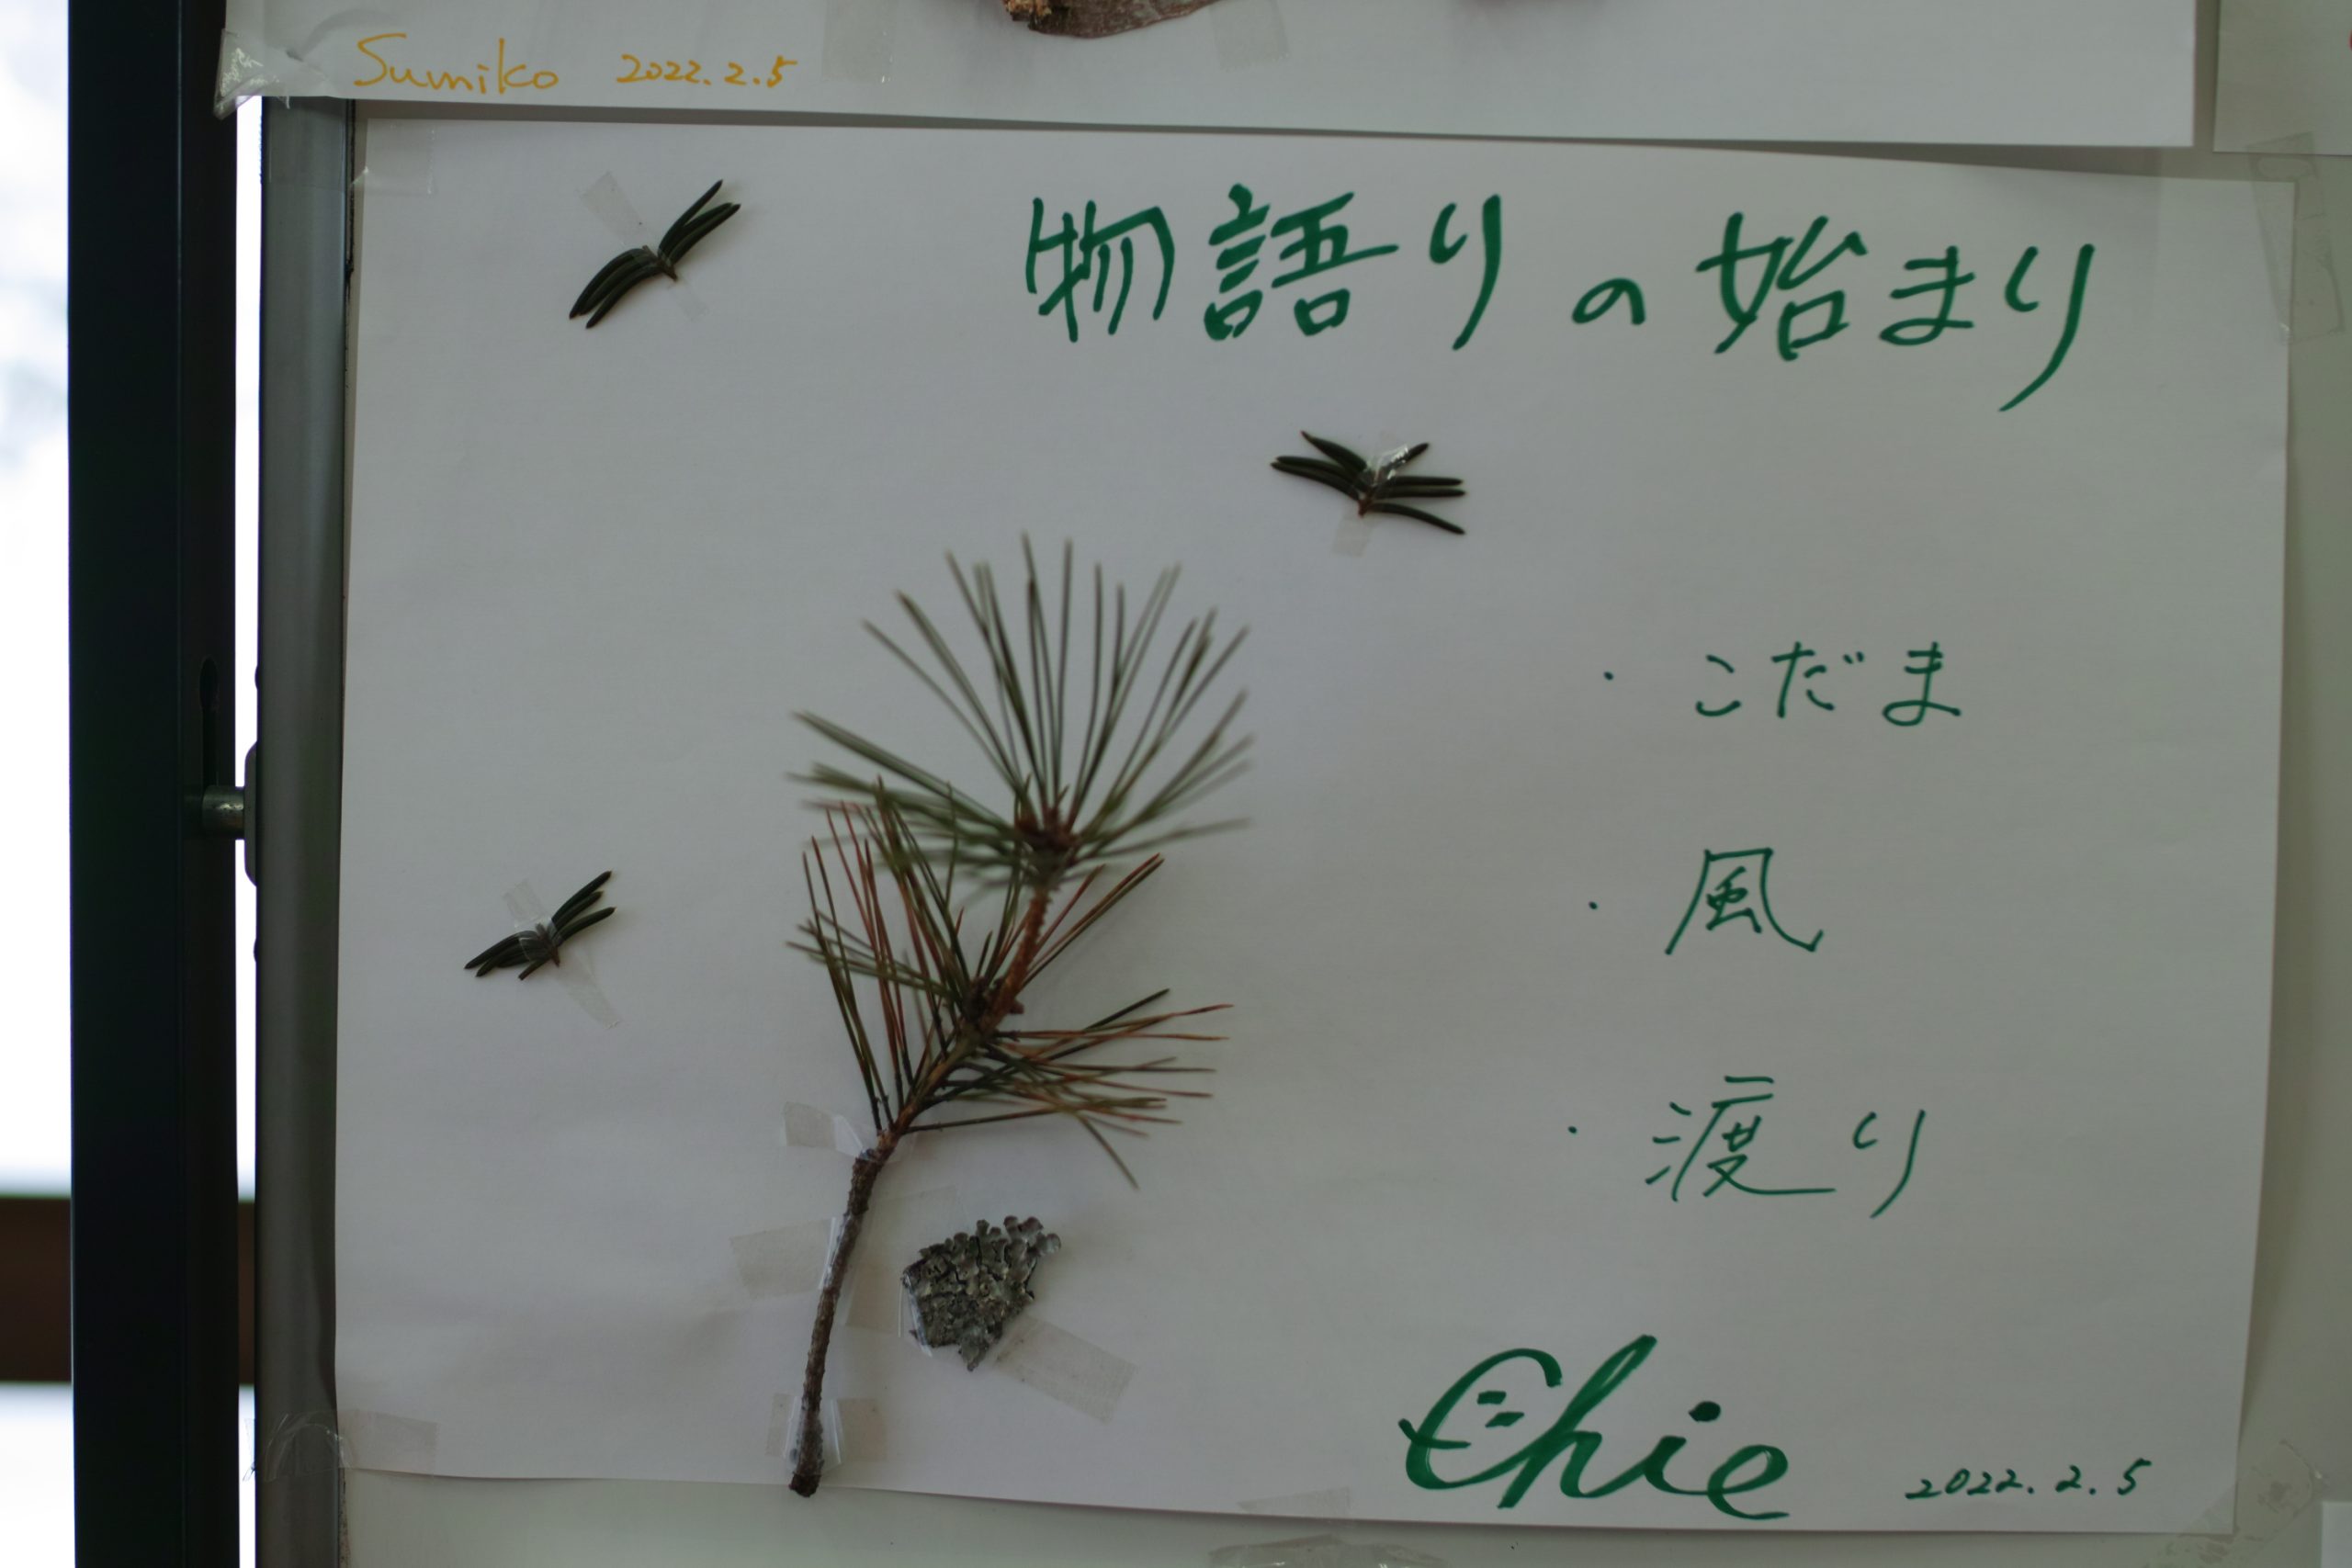 Sumiko 2022.2.5
物語りの始まり
・こだま
・風
・渡り
Chie 2022.2.5